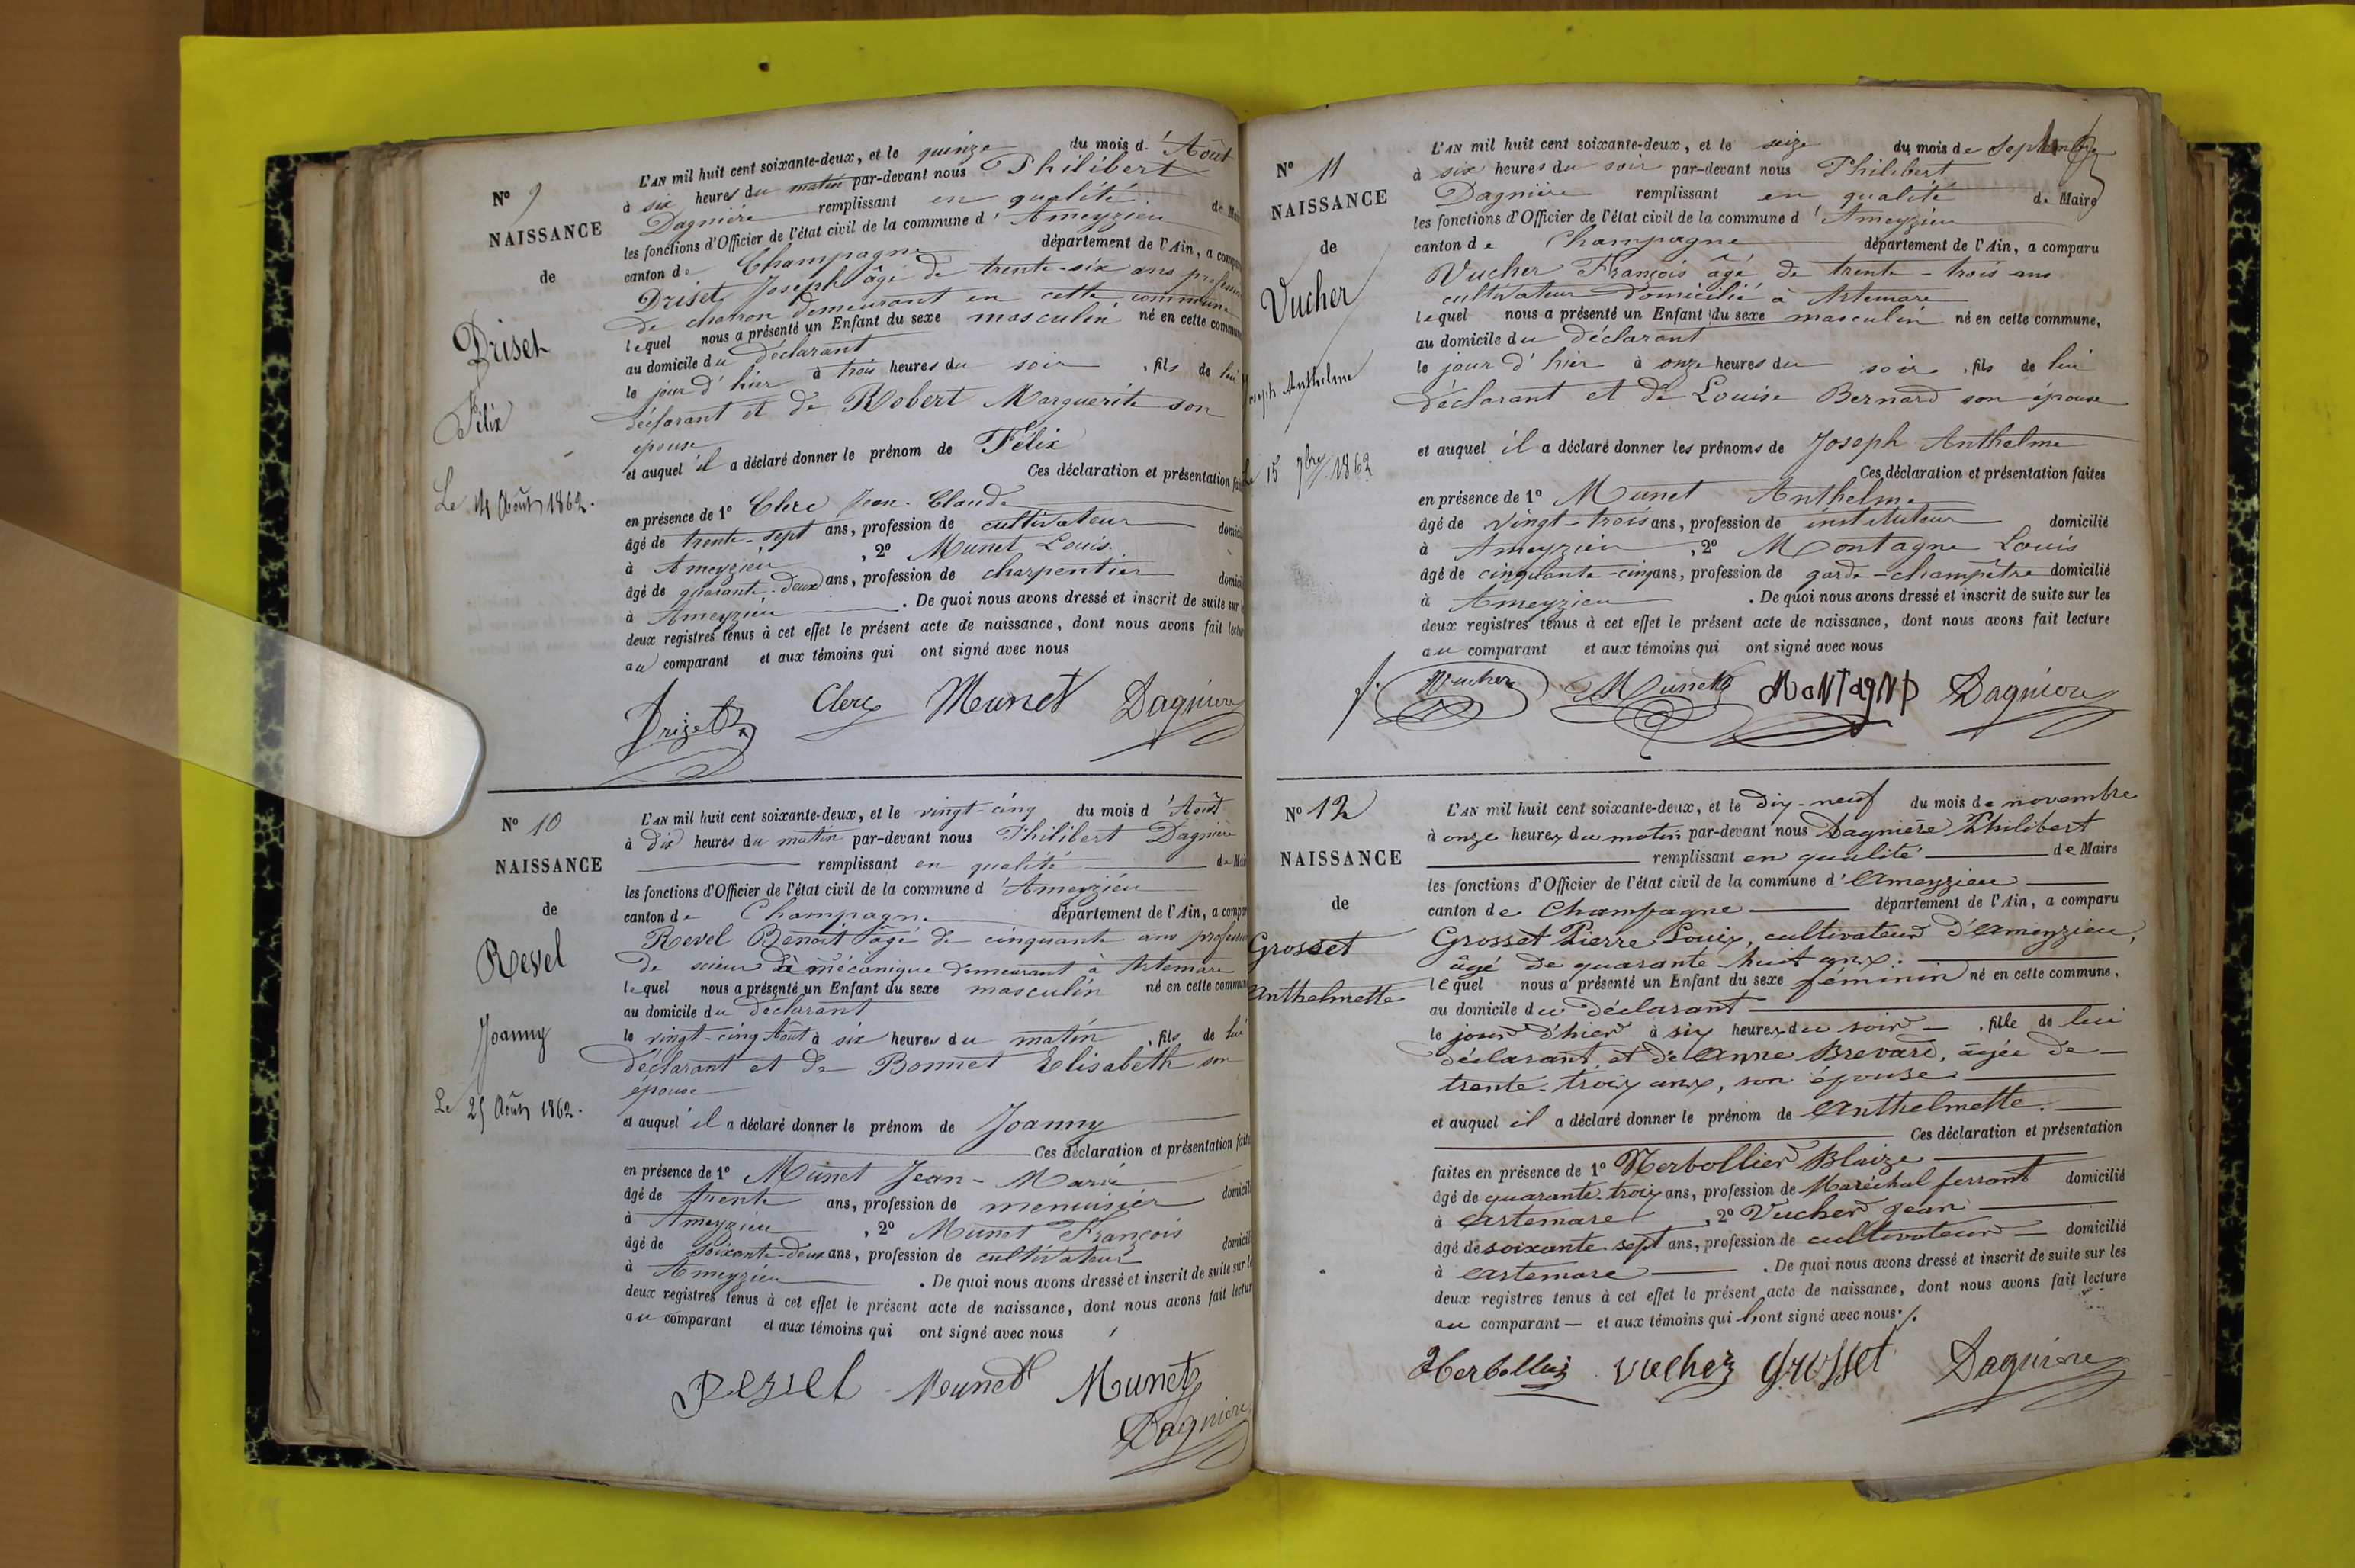 N° 9
NAISSANCE
de
Driset
Félix
Le 14 Août 1862.
L'AN mil huit cent soixante-deux, et le quinze du mois d'Août
à six heures du matin par-devant nous Philibert
Dagnière remplissant en qualité de Mai
les fonctions d'Officier de l'état civil de la commune d'Ameyzieu
canton de Champagne département de l'Ain, a compa
Driset Joseph âgé de trente-six ans profession
de charron demeurant en cette commune
lequel nous a présenté un Enfant du sexe masculin né en cette commune
au domicile du déclarant
le jour d'hier à trois heures du soir, fils de lui
déclarant et de Robert Marguerite son
épouse
et auquel il a déclaré donner le prénom de Félix
Ces déclaration et présentation fai
en présence de 1° Clerc Jean-Claude
âgé de trente-sept ans, profession de cultivateur domici
à Ameyzieu, 2° Munet Louis
âgé de quarante-deux ans, profession de charpentier domici
à Ameyzieu. De quoi nous avons dressé et inscrit de suite sur l
deux registres tenus à cet effet le présent acte de naissance, dont nous avons fait lectur
au comparant et aux témoins qui ont signé avec nous
Drizet Clerc Munet Dagnière
N° 10
NAISSANCE
de
Revel
Joanny
Le 25 Août 1862.
L'AN mil huit cent soixante-deux, et le vingt-cinq du mois d'Août
à dix heures du matin par-devant nous Philibert Dagnière
remplissant en qualité de Mai
les fonctions d'Officier de l'état civil de la commune d'Ameyzieu
canton de Champagne département de l'Ain, a compar
Revel Benoît âgé de cinquante ans profession
de scieur à mécanique demeurant à Artemare
lequel nous a présenté un Enfant du sexe masculin né en cette commun
au domicile du déclarant
le vingt-cinq Août à six heures du matin, fils de lui
déclarant et de Bonnet Elisabeth son
épouse
et auquel il a déclaré donner le prénom de Joanny
Ces déclaration et présentation faite
en présence de 1° Munet Jean-Marie
âgé de trente ans, profession de menuisier domicili
à Ameyzieu, 2° Munet François
âgé de soixante-deux ans, profession de cultivateur domicili
à Ameyzieu. De quoi nous avons dressé et inscrit de suite sur le
deux registres tenus à cet effet le présent acte de naissance, dont nous avons fait lectur
au comparant et aux témoins qui ont signé avec nous
Revel Munet Munet
Dagnière
N° 11
NAISSANCE
de
Vucher
Joseph Anthelme
Le 15 7bre 1862
L'AN mil huit cent soixante-deux, et le seize du mois de Septembre
à six heures du soir par-devant nous Philibert
Dagnière remplissant en qualité de Maire
les fonctions d'Officier de l'état civil de la commune d'Ameyzieu
canton de Champagne département de l'Ain, a comparu
Vucher François âgé de trente-trois ans
cultivateur domicilié à Artemare
lequel nous a présenté un Enfant du sexe masculin né en cette commune,
au domicile du déclarant
le jour d'hier à onze heures du soir, fils de lui
déclarant et de Louise Bernard son épouse
et auquel il a déclaré donner les prénoms de Joseph Anthelme
Ces déclaration et présentation faites
en présence de 1° Munet Anthelme
âgé de vingt-trois ans, profession de instituteur domicilié
à Ameyzieu, 2° Montagne Louis
âgé de cinquante-cinq ans, profession de garde-champêtre domicilié
à Ameyzieu. De quoi nous avons dressé et inscrit de suite sur les
deux registres tenus à cet effet le présent acte de naissance, dont nous avons fait lecture
au comparant et aux témoins qui ont signé avec nous
f. Vucher Munet MONTAGNE Dagnière
N° 12
NAISSANCE
de
Grosset
Anthelmette
L'AN mil huit cent soixante-deux, et le dix-neuf du mois de novembre
à onze heures du matin par-devant nous Dagnière Philibert
remplissant en qualité de Maire
les fonctions d'Officier de l'état civil de la commune d'Ameyzieu
canton de Champagne département de l'Ain, a comparu
Grosset Pierre Louis, cultivateur d'Ameyzieu,
âgé de quarante-huit ans.
lequel nous a présenté un Enfant du sexe féminin né en cette commune,
au domicile du déclarant
le jour d'hier à six heures du soir, fille de lui
déclarant, et de Anne Brevard, âgée de
trente-trois ans, son épouse
et auquel il a déclaré donner le prénom de Anthelmette.
Ces déclaration et présentation
faites en présence de 1° Herbollier Blaize
âgé de quarante-trois ans, profession de Maréchal ferrant domicilié
à Artemare, 2° Vucher Jean
âgé de soixante-sept ans, profession de cultivateur domicilié
à Artemare. De quoi nous avons dressé et inscrit de suite sur les
deux registres tenus à cet effet le présent acte de naissance, dont nous avons fait lecture
au comparant et aux témoins qui ont signé avec nous./.
Herbollier Vucher Grosset Dagnière